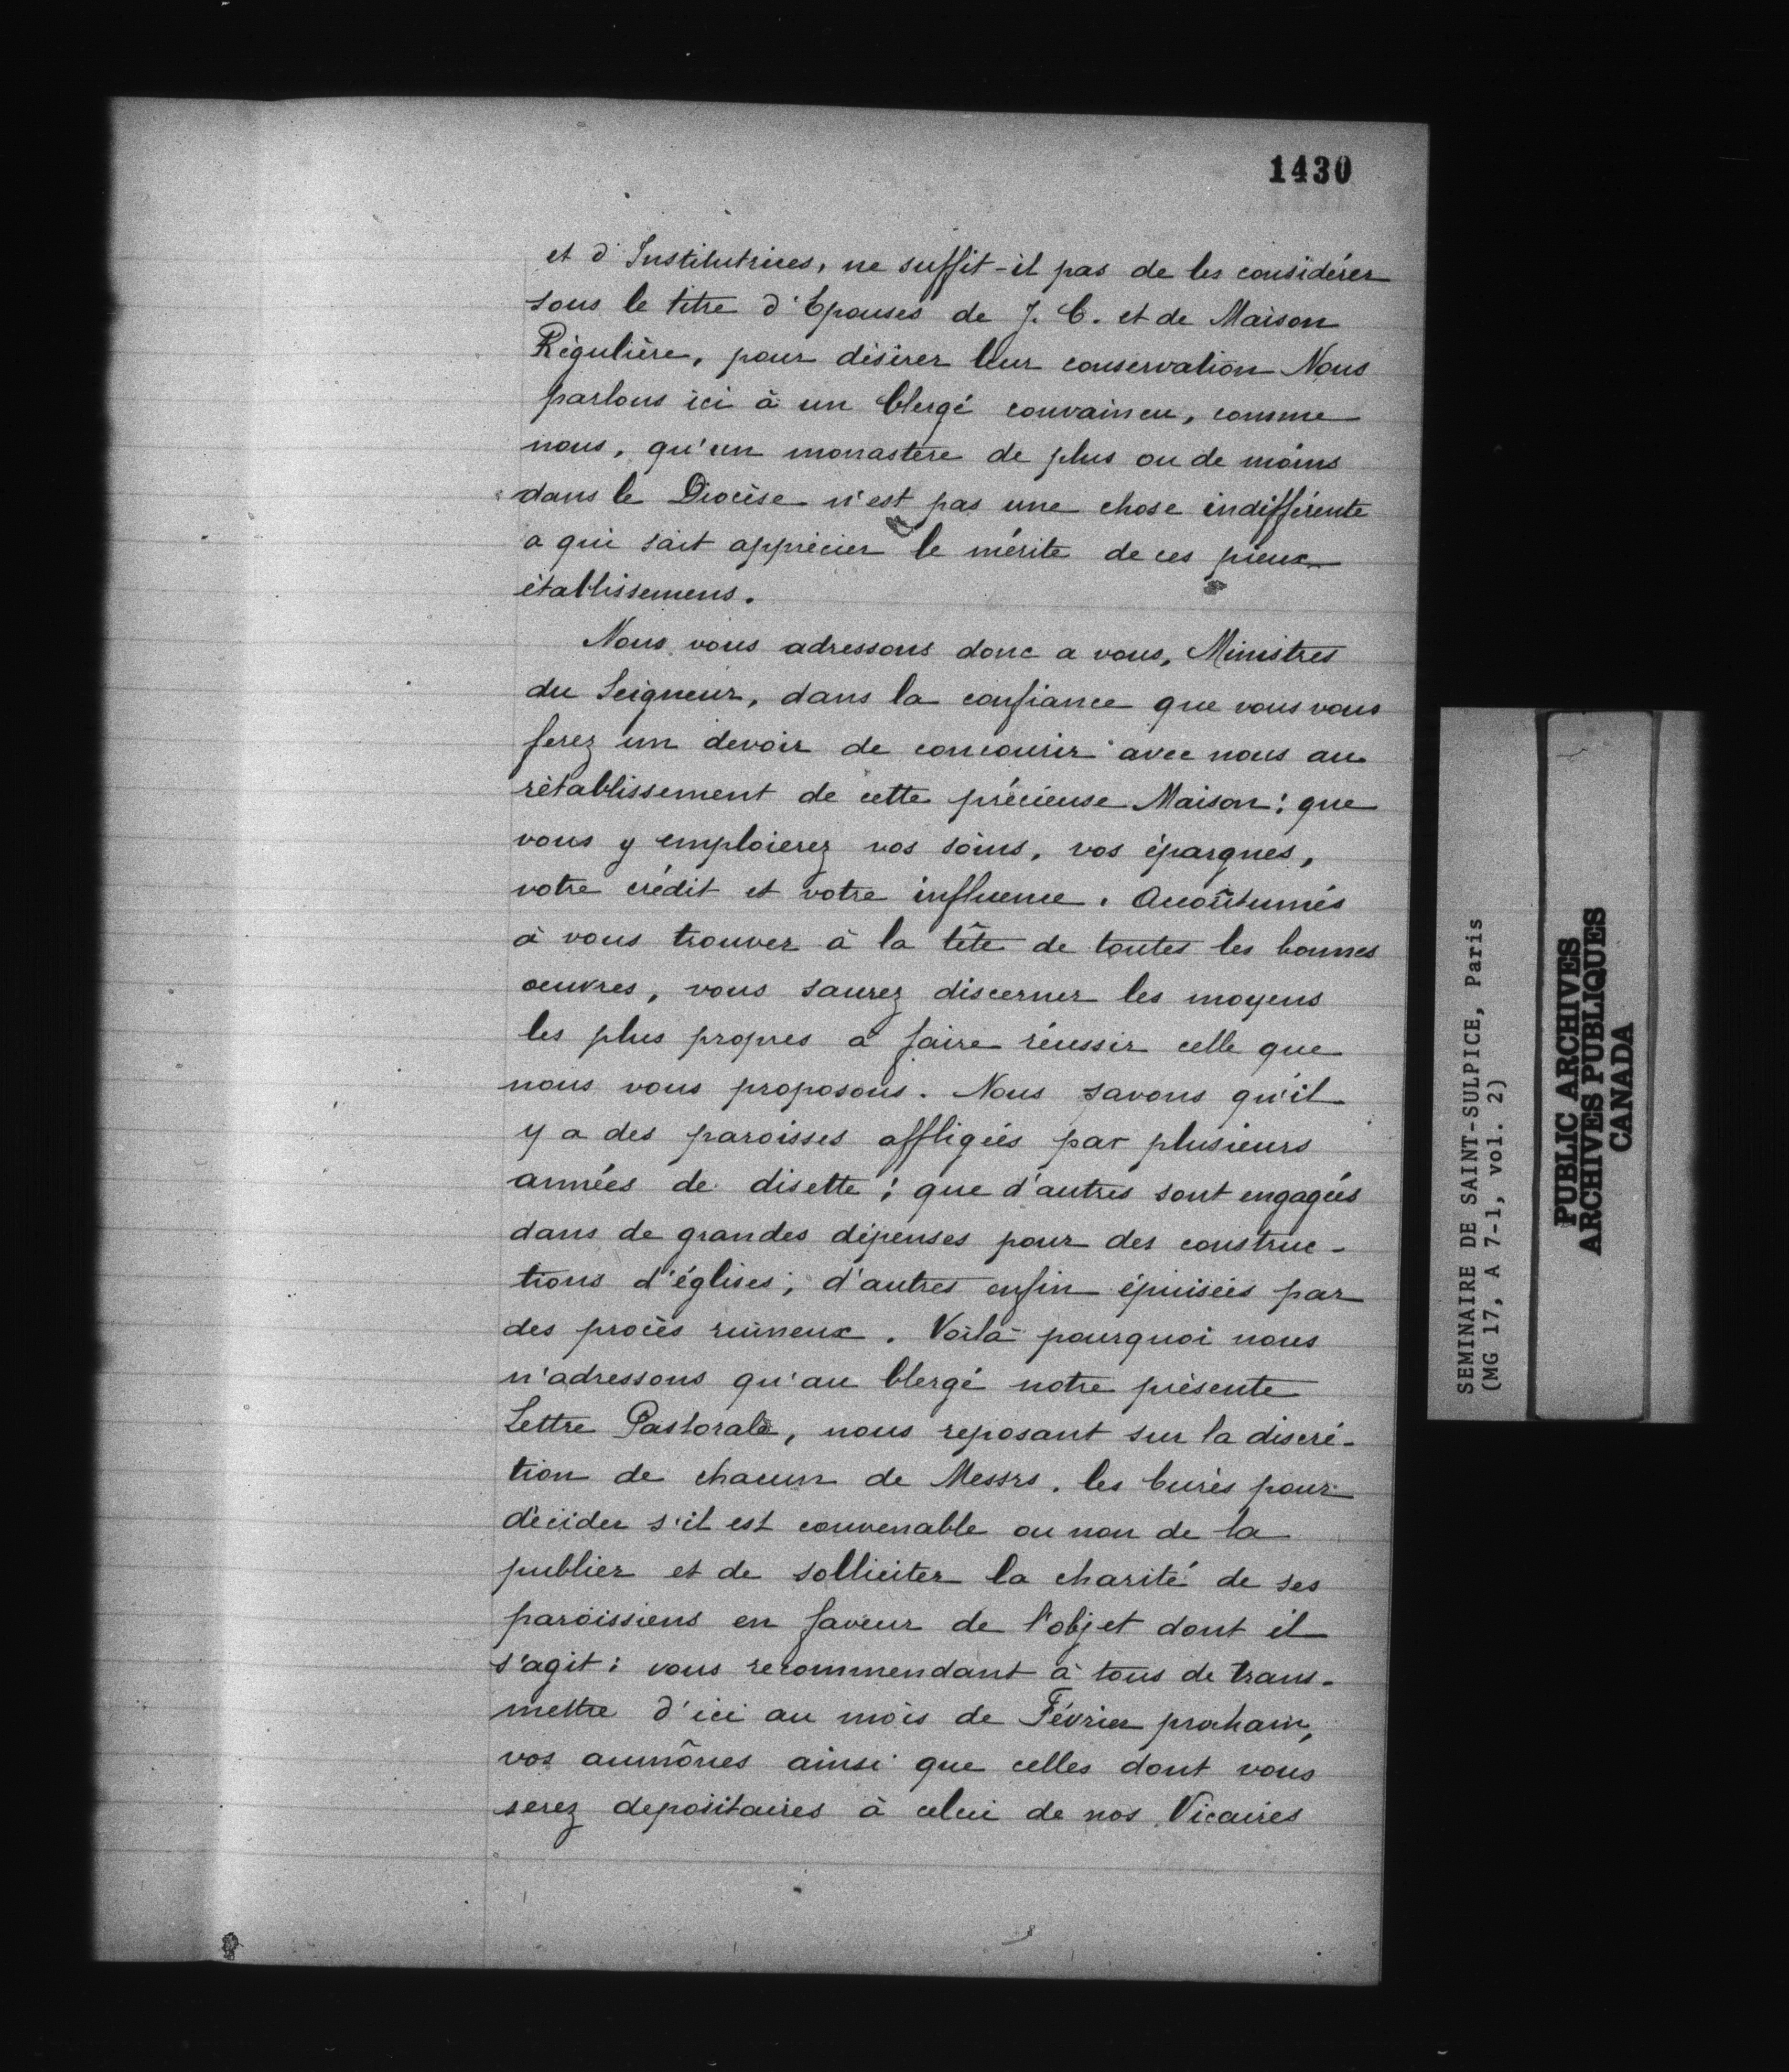 1430
et d'Institutrices, ne suffit-il pas de les considérer
sous le titre d'Epouses de J. C. et de Maison
Régulière, pour désirer leur conservation Nous
parlons ici à un Clergé convaincu, comme
nous, qu'un monastère de plus ou de moins
dans le Diocèse n'est pas une chose indifférente
a qui sait apprécier le mérite de ces pieux
établissemens.
Nous vous adressons donc a vous, Ministres
du Seigneur, dans la confiance que vous vous
ferez un devoir de concourir avec nous au
rétablissement de cette précieuse Maison: que
vous y emploierez vos soins, vos épargnes,
votre crédit et votre influence. Accoûtumés
à vous trouver à la tête de toutes les bonnes
oeuvres, vous saurez discerner les moyens
les plus propres à faire réussir celle que
nous vous proposons. Nous savons qu'il
y a des paroisses affligées par plusieurs
années de disette; que d'autres sont engagées
dans de grandes dépenses pour des construc-
tions d'églises; d'autres enfin épuisées par
des procès ruineux. Voilà pourquoi nous
n'adressons qu'au Clergé notre présente
Lettre Pastorale, nous reposant sur la discré-
tion de chacun de Messrs. les Curés pour
décider s'il est convenable ou non de la
publier et de solliciter la charité de ses
paroissiens en faveur de l'objet dont il
s'agit: vous recommendant à tous de trans-
mettre d'ici au mois de Février prochain,
vos aumônes ainsi que celles dont vous
serez depositaires à celui de nos Vicaires
SEMINAIRE DE SAINT-SULPICE, Paris
(MG 17, A 7-1, vol. 2)
PUBLIC ARCHIVES
ARCHIVES PUBLIQUES
CANADA